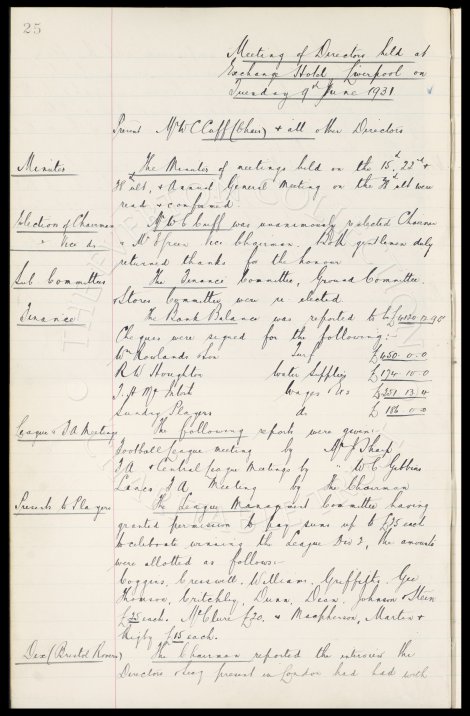 25
Meeting of Directors held at
Exchange Hotel Liverpool on
Tuesday 9th June 1931
Present Mr W C Cuff (Chair) & all other Directors
Minutes The Minutes of meetings held on the 15th, 22nd &
ult, & Annual General Meeting on the ult were
read & confirmed
Election of Chairman Mr W C Cuff was unanimously re elected Chairman
" Vice do & Mr Green Vice Chairman. Both gentlemen duly
returned thanks for the honour
Sub Committees The Finance Committee, Ground Committee
& Stores Committee were re elected.
Finance The Bank Balance was reported to be
Cheques were signed for the following:-
Wm Rowlands & Son Turf £450 0-0
R W Houghton Water Supplies £174 10-0
J. H McIntosh Wages &os £251 13/4
Sundry Players do £186 0-0
League & F A Meetings The following reports were given:-
Football League meeting by Mr J Sharp
F.A & Central League Meetings by " W C Gibbins
Lancs F A Meeting by the Chairman
Presents to Players The League Management Committee having
granted permission to pay sums up to £25 each
to celebrate winning the League Div 2, the amounts
were allotted as follows:-
Coggins, Cresswell, Williams, Griffiths, Gee
Thomson, Critchley, Dunn, Dean, Johnson & Stein
£25 each. McClure £20. & Macpherson, Martin &
Rigby £15 each.
Dix (Bristol Rovers) The Chairman reported the interview the
Directors being present in London had had with